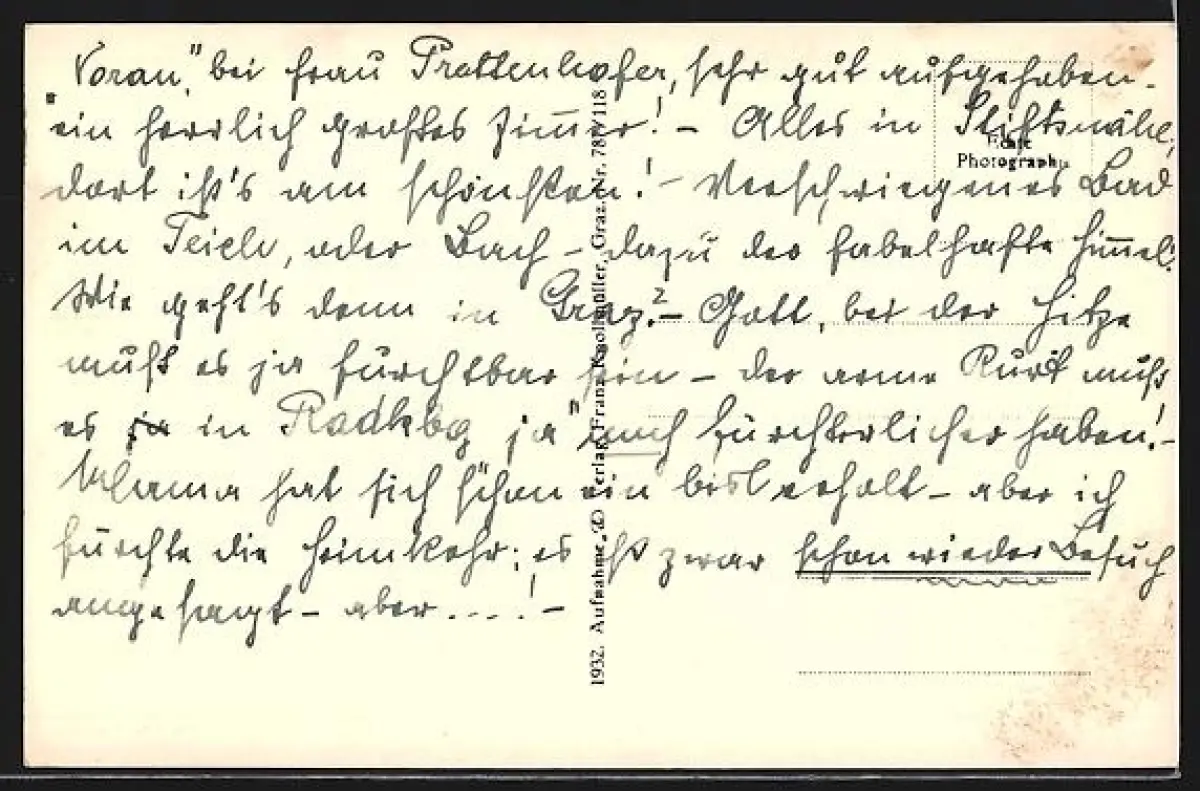 „Vorau," bei Frau Prattenhofer, sehr gut aufgehoben -
ein herrlich großes Zimmer! - Alles in Stiftsnähe,
dort ist's am schönsten! - Verschwiegenes Bad
im Teich, oder Bach - dazu der fabelhafte Himmel.
Wie geht's denn in Graz? - Gott, bei der Hitze
muß es ja furchtbar sein - der arme Kurt muß
es ja in Radkbg ja noch fürchterlicher haben! -
Mama hat sich schon ein bisl erholt - aber ich
fürchte die Heimkehr; es ist zwar schon wieder Besuch
angesagt - aber ....! -
Echte
Photographie
1932. Aufnahme u. Verlag Franz Knollmüller, Graz. Nr. 787/118